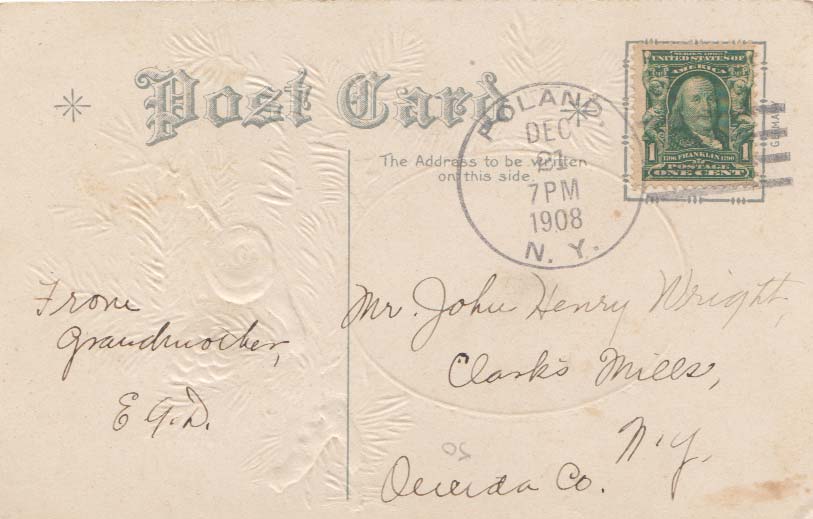 Post Card
The Address to be written
on this side.
POLAND,
DEC
21
7 PM
1908
N. Y.
SERIES 1902
UNITED STATES OF
AMERICA
1 1706 FRANKLIN 1790 1
POSTAGE
ONE CENT
GERMANY
From
Grandmother,
E G. D.
Mr. John Henry Wright,
Clarks Mills,
N. Y.
Oneida Co.
50